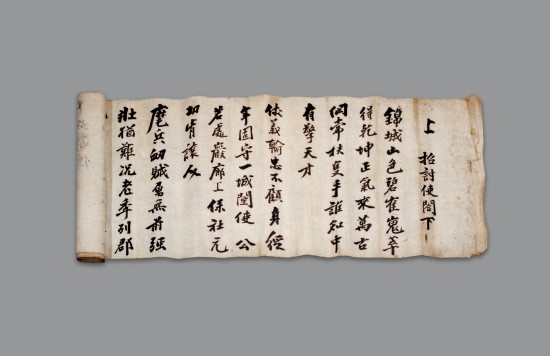 上 招討使閤下
錦城山色碧崔嵬萃
得乾坤正氣來萬古
綱常扶隻手誰知中
有擎天才
仗義輸忠不顧身經
年固守一城闉使公
若處嚴廊上保社元
功肯讓
麾兵賊勇無前強
壯猶難況老年列郡